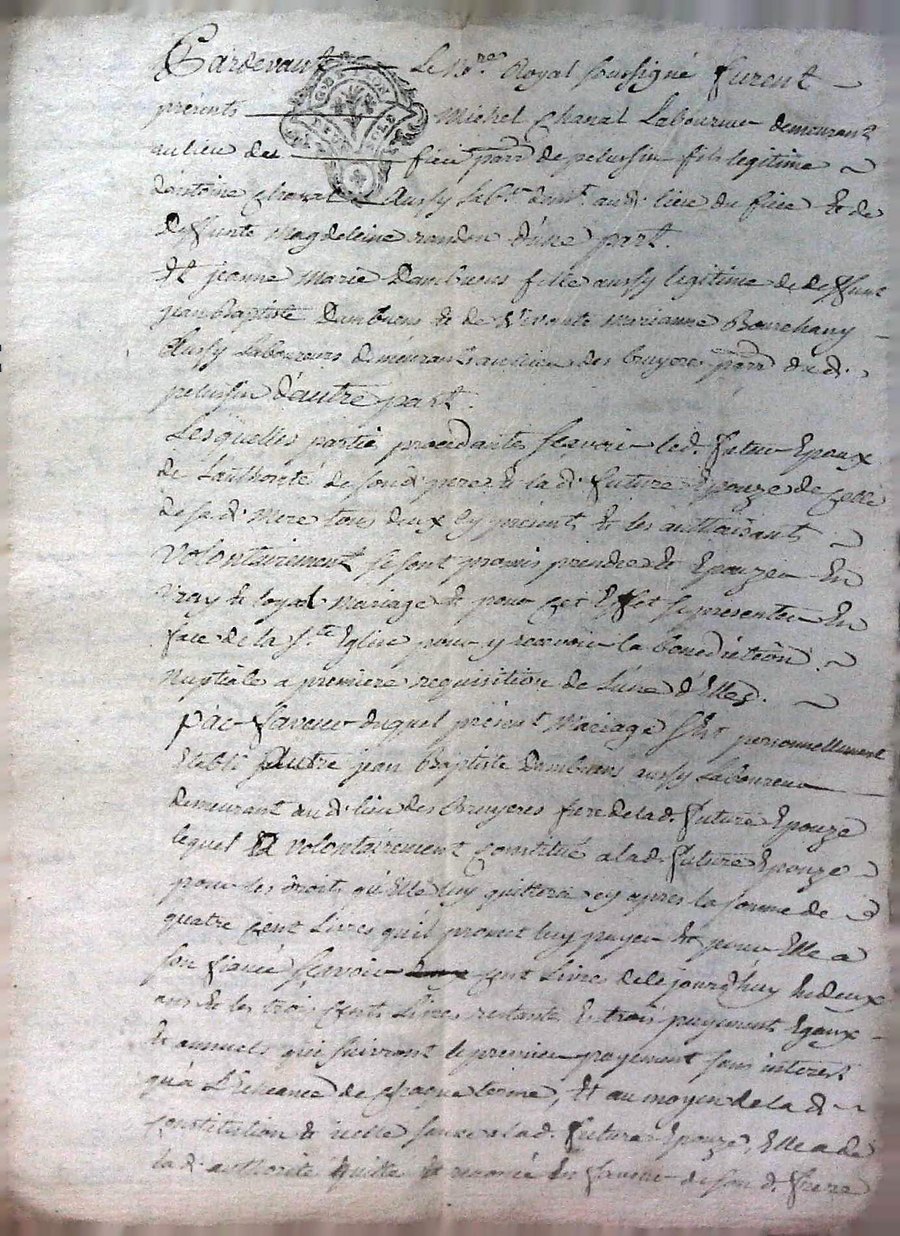 Pardevant Le No.re Royal soussigné furent
présents Michel Chanal Laboureur demeurant
au lieu de fice parr. de pelussin fils legitime
d'antoine Chanal Aussy lab.r dem.t aud. lieu du fice Et de
Deffunte Magdeleine randon d'une part.
Et jeanne Marie Dambuens fille aussy legitime de deffunt
jean Baptiste Dambuens Et de Vivante Marianne Bourchany
Aussy Laboureurs demeurants au lieu des bruyeres parr. dud.
pelussin d'autre part.
Lesquelles partie procédantes sçavoir led. futur Epoux
de L'authorité de son d. pere, Et la d. future Epouze de Celle
de sa d. Mere tous deux Cy présents Et les authorisants
Volontairement se sont promis prendre Et Epouzer En
Vray Et loyal Mariage Et pour Cet Effet se presenter En
face de la S.te Eglise pour y recevoir la benediction
Nuptiale a premiere requisition de L'une d'Elles.
par faveur duquel présent Mariage S'est personnellement
Etabli autre jean Baptiste Dambuens aussy Laboureur
demeurant au d. lieu des Bruyeres frere de la d. future Epouze
lequel A volontairement Constitué a la d. future Epouze
pour les droits qu'Elle luy quittera Cy apres la somme de
quatre Cent Livres qu'il promet luy payer Et pour Elle a
son fiancé sçavoir Cent Livre de Ce jourd'huy En deux
ans Et les trois Cents Livres restante En trois payement Egaux
Et annuels qui suivront le premier payement sans interest
qu'a L'Echeance de Chaque terme, Et au moyen de la d.
Constitution Et icelle faite a la d. future Epouze, Elle a de
la d. authorité quitté Et renoncé En faveur de son d. frere